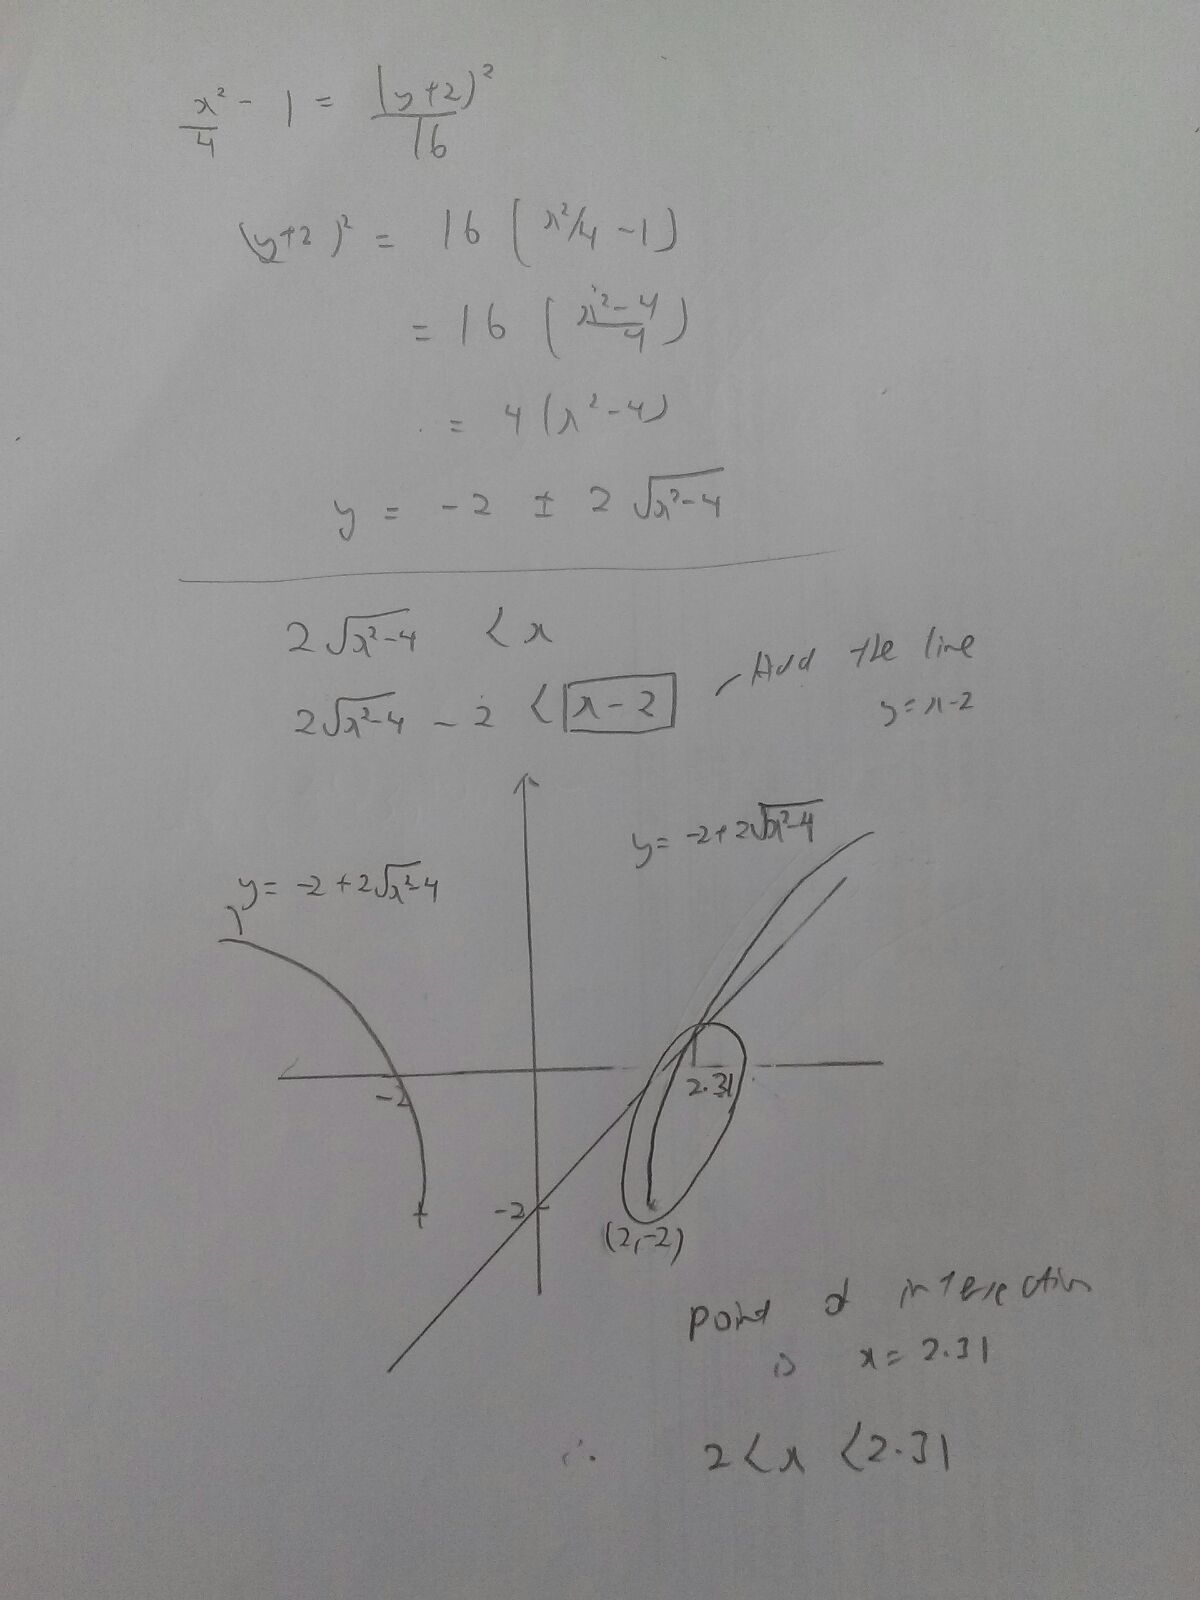 x²/4 - 1 = (y+2)²/16
(y+2)² = 16 (x²/4 - 1)
= 16 (x²-4/4)
= 4 (x²-4)
y = -2 ± 2 √x²-4
2 √x²-4 < x
2√x²-4 - 2 < x-2
Add the line
y=x-2
y= -2+2√x²-4
y= -2+2√x²-4
-2
2.31
-2
(2,-2)
point of intersection
is x= 2.31
∴ 2<x<2.31